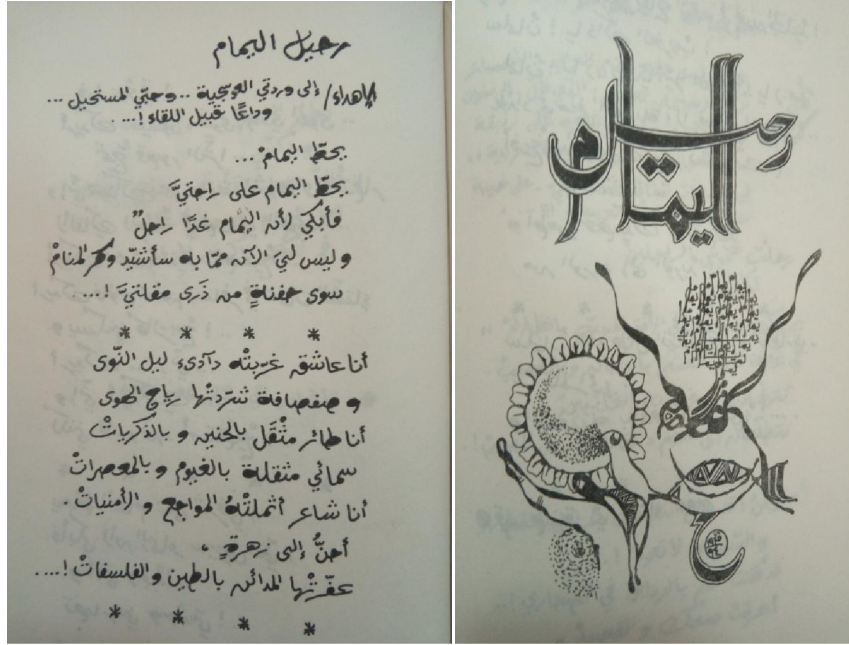 رحيل اليمام
إهداء/ إلى وردتي العوسجية .. وحبّي المستحيل ...
وداعًا قبيل اللقاء !...
يحطّ اليمامْ ...
يحطّ اليمام على راحتيَّ
فأبكي لأن اليمام غدًا راحلٌ
وليس لديَ الآن ممّا به سأشيّد وكر المنامْ
سوى حفنةٍ من ذَرى مقلتيَّ !...
* * * *
أنا عاشق غرّبتْه دآدىء ليل النّوى
وصفصافة شرّدتْها رياح الهوى
أنا طائر مثْقَل بالحنين وبالذكرياتْ
سمائي مثقلة بالغيوم وبالمعصراتْ
أنا شاعر أثملتْهُ المواجع والأمنياتْ .
أحنُّ إلى زهرةٍ ،
عفّرتْها المدائن بالطين والفلسفاتْ !....
* * * *
رحيل
اليمام